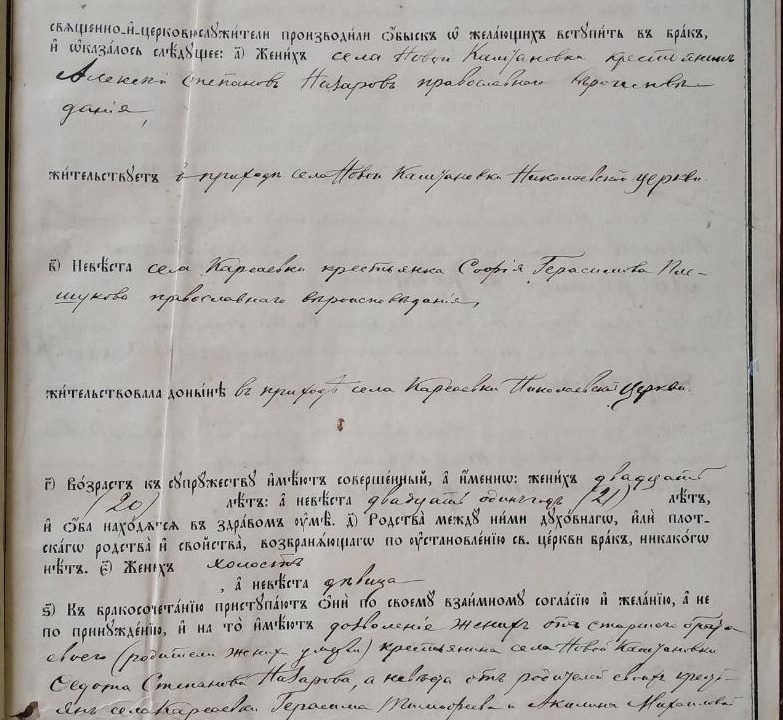 свѧщенно-и҆-церковнослꙋжители производили ѡ҆быскъ ѡ҆ желающихъ встꙋпить въ бракъ,
и҆ ѡ҆казалось слѣдꙋщее: а҃) Жених̾ села Новой Каштановки крестьянинъ
Алексѣй Степановъ Назаровъ православнаго вѣроисповѣ-
данія,
жительствꙋетъ въ приходѣ села Новой Каштановки Николаевской церкви.
в҃) Невѣста села Карсаевки крестьянка Софія Герасимова Пле-
шукова православнаго вѣроисповѣданія,
жительствовала донынѣ въ приходѣ села Карсаевки Николаевской церкви.
г҃) Возрастъ къ сꙋпрꙋжествꙋ имѣютъ совершенный, а҆ именнѡ: женихъ двадцать
(20) лѣтъ: а҆ невѣста двадцать одинъ годъ (21) лѣтъ,
и҆ ѡ҆ба находѧтсѧ въ здравомъ ᲂу҆мѣ. д҃) Родства междꙋ ними дꙋховнагѡ, и҆ли плот-
скагѡ родства и҆ свойства, возбранѧющагѡ по ᲂу҆становленїю св. церкви бракъ, никакогѡ
нѣтъ. є҃) Жених̾ холостъ
, а҆ невѣста дѣвица
ѕ҃) Къ бракосочетанїю пристꙋпаютъ ѻ҆ни по своемꙋ взаимномꙋ согласїю и҆ желанїю, а҆ не
по принꙋжденїю, и҆ на то имѣютъ дозволеніе женихъ отъ старшаго брата
своего (родители жениха умерли) крестьянина села Новой Каштановки
Ѳедота Степанова Назарова, а невѣста отъ родителей своихъ кресть-
янъ села Карсаевки Герасима Тимоѳеева и Акилины Михайловой